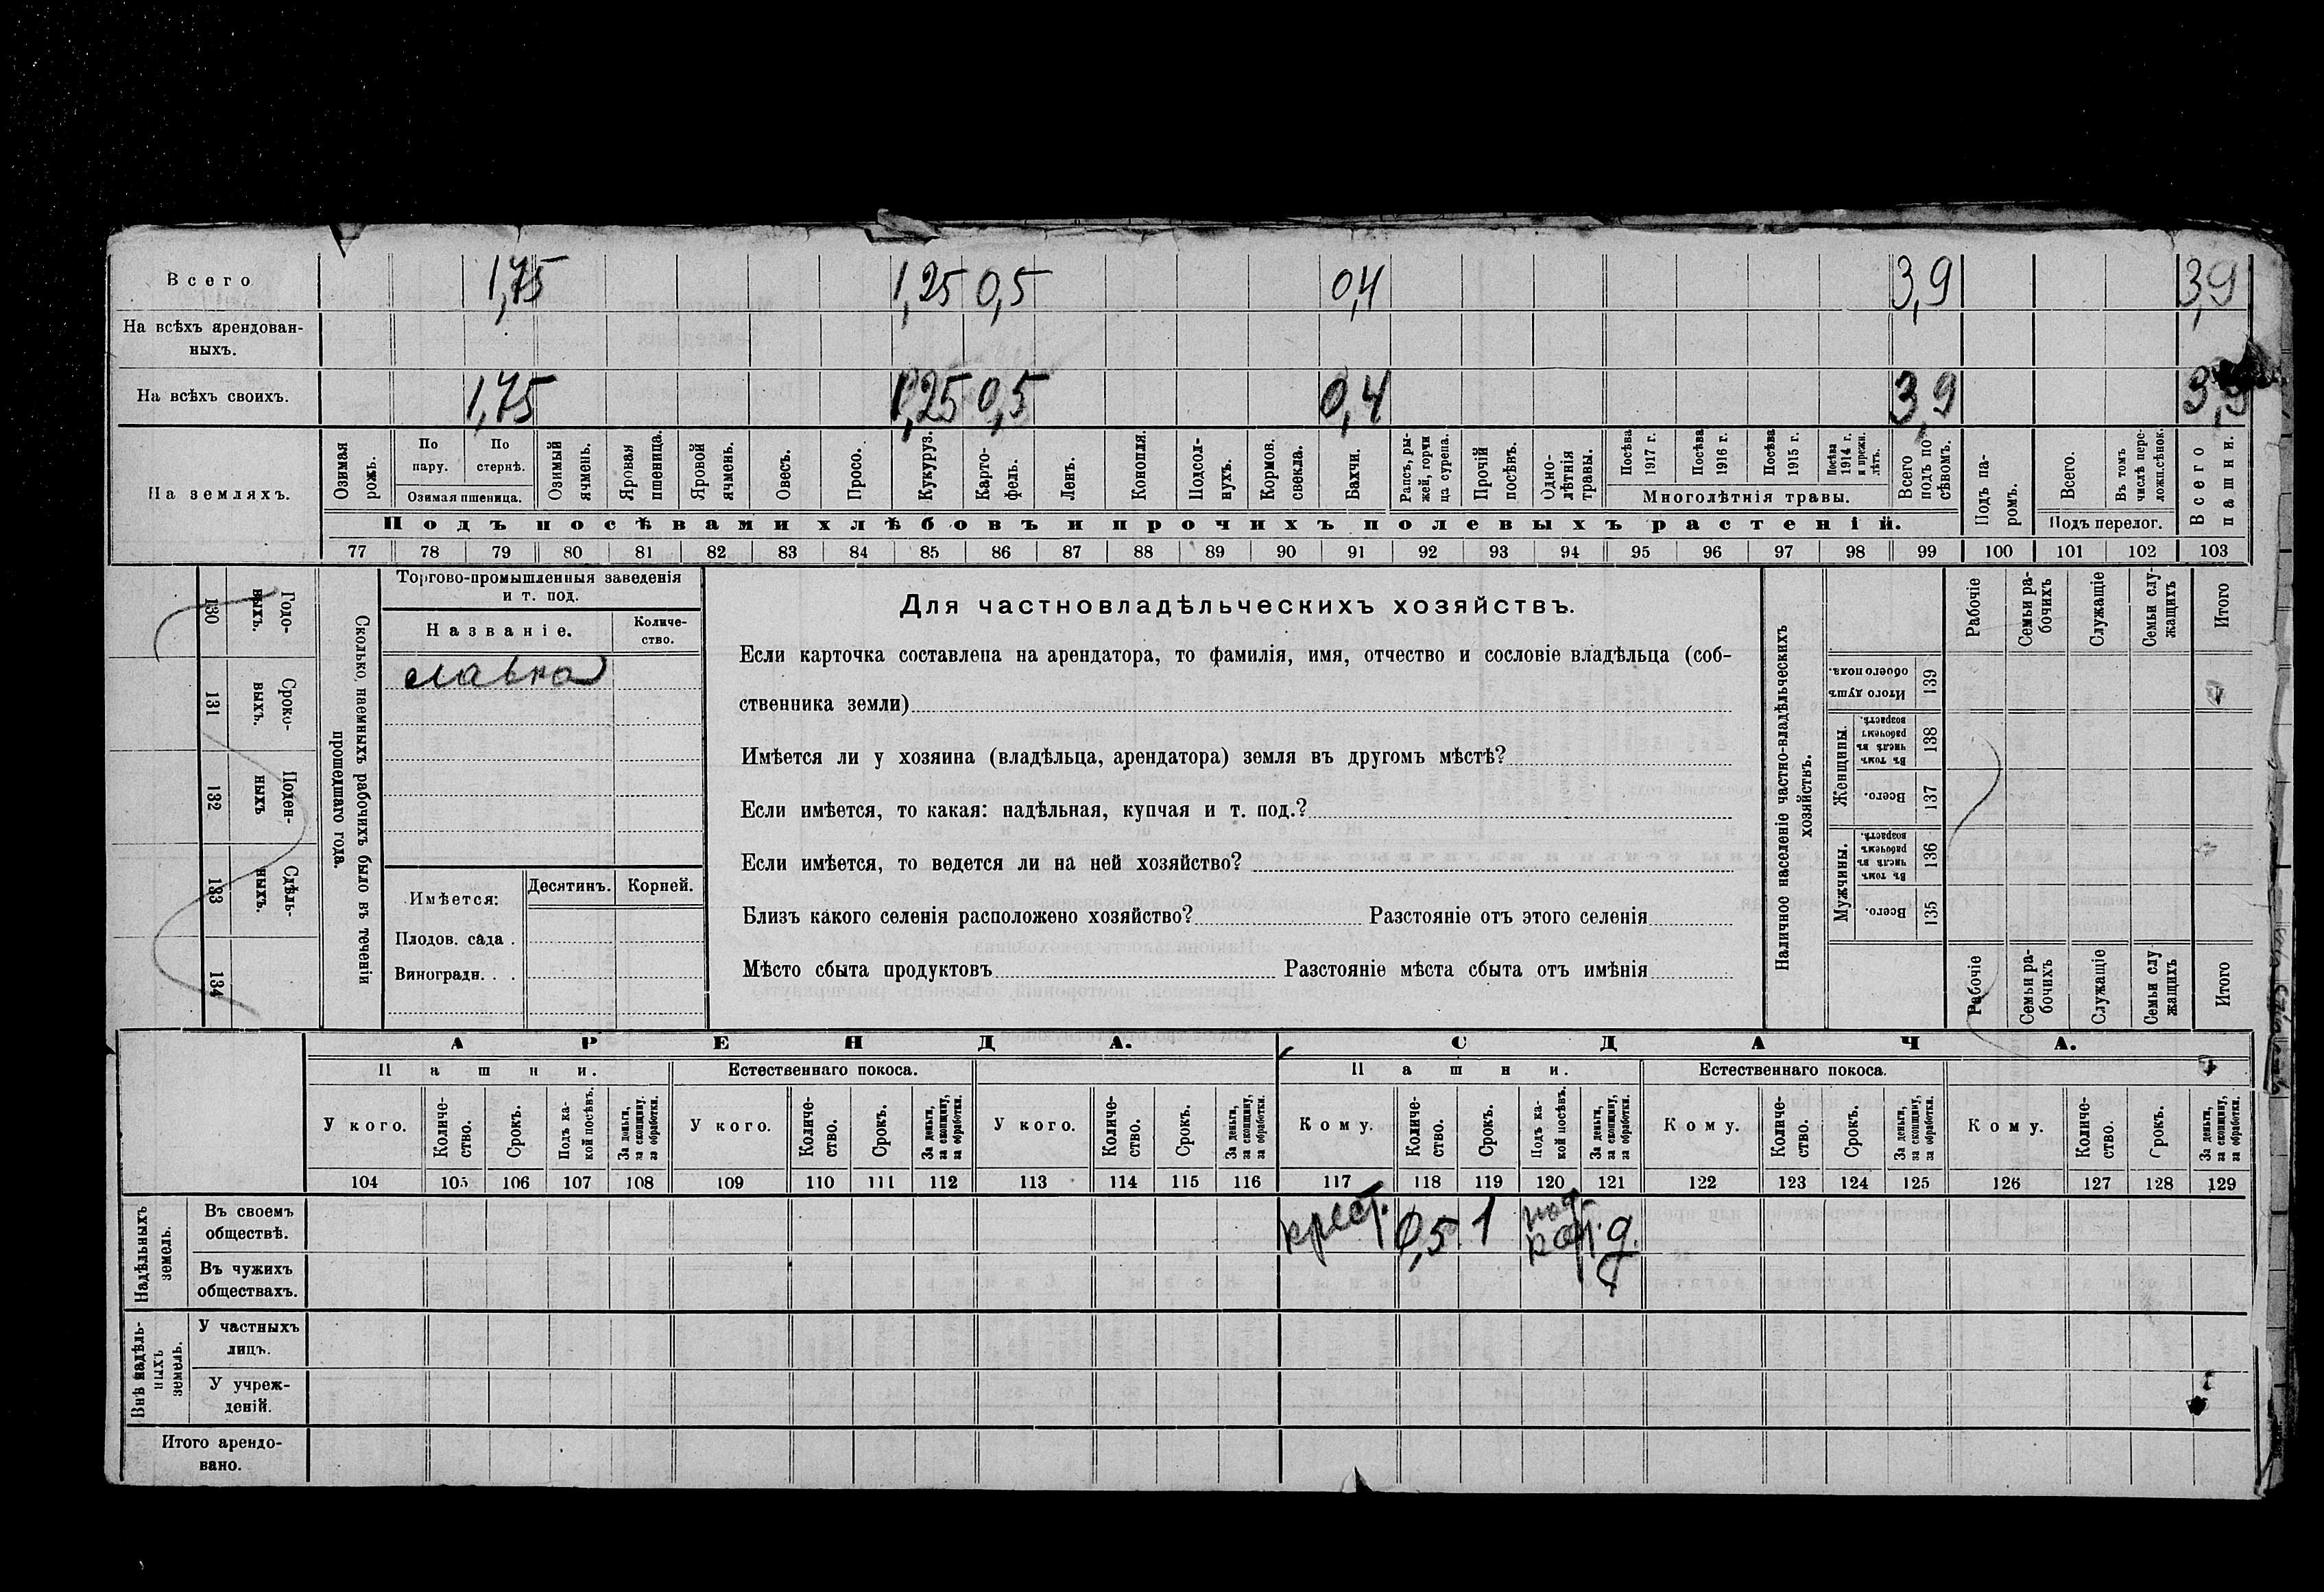 Всего 1,75 1,25 0,5 0,4 3,9 3,9
На всѣхъ арендован-
ныхъ.
На всѣхъ своихъ. 1,75 1,25 0,5 0,4 3,9 3,9
На земляхъ.
Озимая рожь.
По пару.
По стернѣ.
Озимая пшеница.
Озимый ячмень.
Яровая пшеница.
Яровой ячмень.
Овесъ.
Просо.
Кукуруз.
Карто-
фель.
Ленъ.
Конопля.
Подсол-
нухъ.
Кормов. свекла.
Бахчи.
Рапсъ, ры-
жей, горчи
ца сурепа.
Прочій посѣвъ.
Одно-
лѣтнія
травы.
Посѣва 1917 г.
Посѣва 1916 г.
Посѣва 1915 г.
Посѣва 1914 г. и прежн. лѣтъ.
Многолѣтнія травы.
Всего подъ по-
сѣвомъ.
Подъ па-
ромъ.
Всего.
Въ томъ числѣ пере-
ложн.сѣнок.
Подъ перелог.
Всего пашни.
Подъ посѣвами хлѣбовъ и прочихъ полевыхъ растеній.
77 78 79 80 81 82 83 84 85 86 87 88 89 90 91 92 93 94 95 96 97 98 99 100 101 102 103
Годо-
выхъ.
130
Сроко-
выхъ.
131
Поден-
ныхъ
132
Сдѣль-
ныхъ.
133
134
Сколько наемныхъ рабочихъ было въ теченіи
прошедшаго года.
Торгово-промышленныя заведенія
и т. под.
Названіе.
Количе-
ство.
лавка
Имѣется:
Десятинъ.
Корней.
Плодов. сада .
Виноградн. . .
Для частновладѣльческихъ хозяйствъ.
Если карточка составлена на арендатора, то фамилія, имя, отчество и сословіе владѣльца (соб-
ственника земли)
Имѣется ли у хозяина (владѣльца, арендатора) земля въ другомъ мѣстѣ?
Если имѣется, то какая: надѣльная, купчая и т. под.?
Если имѣется, то ведется ли на ней хозяйство?
Близъ какого селенія расположено хозяйство? Разстояніе отъ этого селенія
Мѣсто сбыта продуктовъ Разстояніе мѣста сбыта отъ имѣнія
Наличное населеніе частно-владѣльческихъ
хозяйствъ.
Рабочіе
Семьи ра-
бочихъ
Служащіе
Семьи слу-
жащихъ
Итого
Итого душъ обоего пола. 139
Женщины.
Въ томъ числѣ въ рабочемъ возрастѣ. 138
Всего. 137
Мужчины.
Въ томъ числѣ въ рабочемъ возрастѣ. 136
Всего. 135
Рабочіе
Семьи ра-
бочихъ
Служащіе
Семьи слу
жащихъ
Итого
АРЕНДА. СДАЧА.
Пашни. Естественнаго покоса. Пашни. Естественнаго покоса.
У кого.
Количе-
ство.
Срокъ.
Подъ ка-
кой посѣвъ.
За деньги,
за скопщину,
за обработки.
У кого.
Количе-
ство.
Срокъ.
За деньги,
за скопщину,
за обработки.
У кого.
Количе-
ство.
Срокъ.
За деньги,
за скопщину,
за обработки.
Кому.
Количе-
ство.
Срокъ.
Подъ ка-
кой посѣвъ.
За деньги,
за скопщину,
за обработки.
Кому.
Количе-
ство.
Срокъ.
За деньги,
за скопщину,
за обработки.
Кому.
Количе-
ство.
Срокъ.
За деньги,
за скопщину,
за обработки.
104 105 106 107 108 109 110 111 112 113 114 115 116 117 118 119 120 121 122 123 124 125 126 127 128 129
Надѣльныхъ
земель.
Въ своемъ
обществѣ.
крест. 0,5 1 под д.
Въ чужихъ
обществахъ.
Внѣ надѣль-
ныхъ
земель.
У частныхъ
лицъ.
У учреж-
деній.
Итого арендо-
вано.